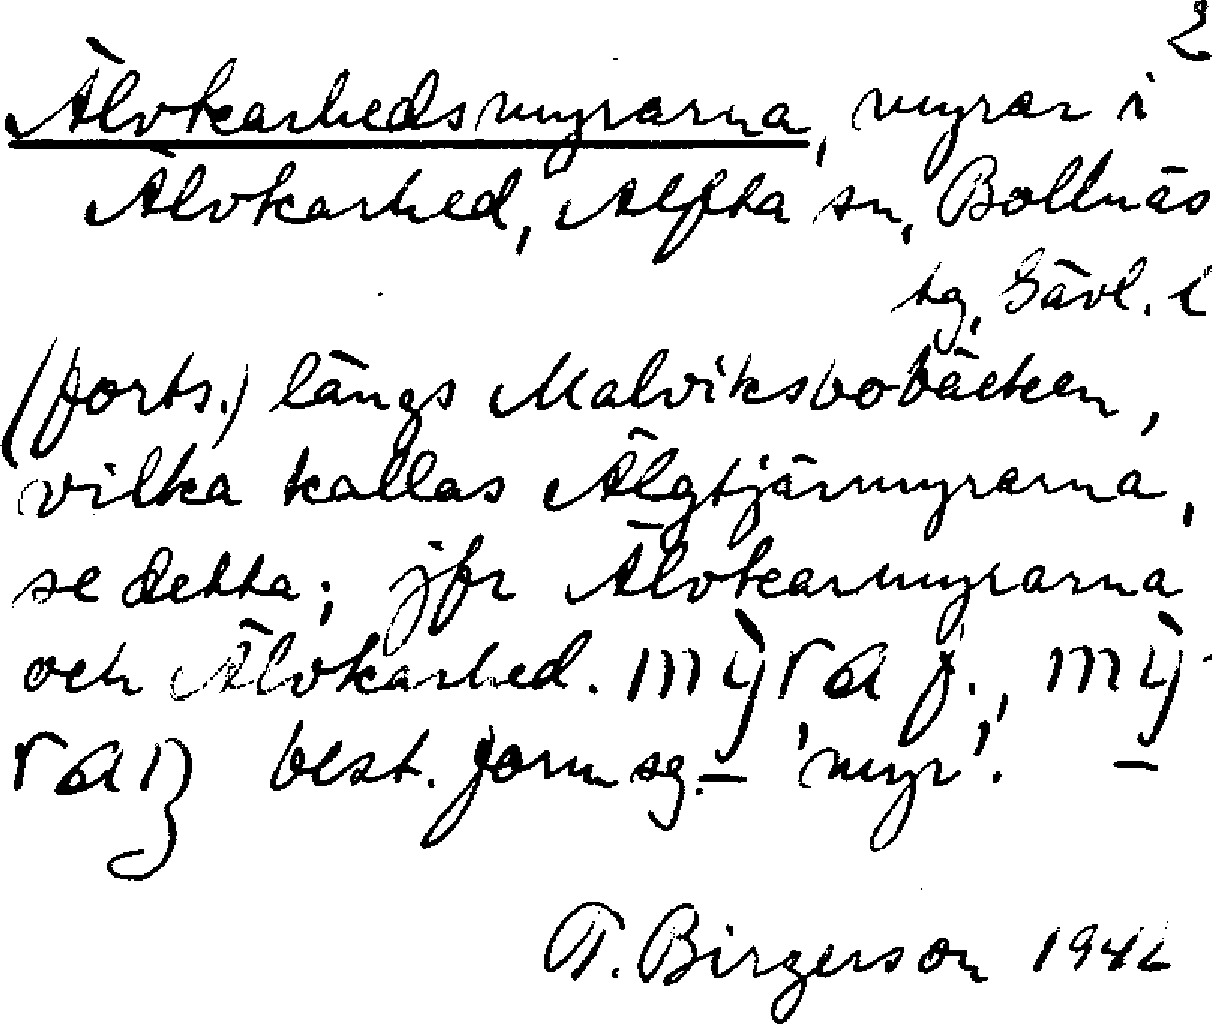 2
Älvkarhedsmyrarna, myrar i
Älvkarhed, Alfta sn, Bollnäs
tg, Gävl. l
(forts.) längs Malviksbobäcken,
vilka kallas Älgtjärnmyrarna,
se detta; jfr Älvkarmyrarna
och Älvkarhed. mỳra f., mỳ-
ran best. form sg. – 'myr'. –
T. Birgerson 1942